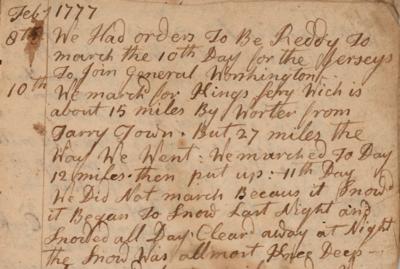 Feby 1777
8th We Had orders To Be Reddy To
march the 10th Day for the Jerseys
To Join General Worshington
10th We march for Kings fery Wich is
about 15 miles By Worter from
Tarry Town. But 27 miles the
Way We Went: We marched To Day
12 miles then put up: 11th Day
We Did Not march Becaus it Snow'd
it Began To Snow Last Night and
Snowed all Day Clear away at Night
the Snow was allmost Knee Deep